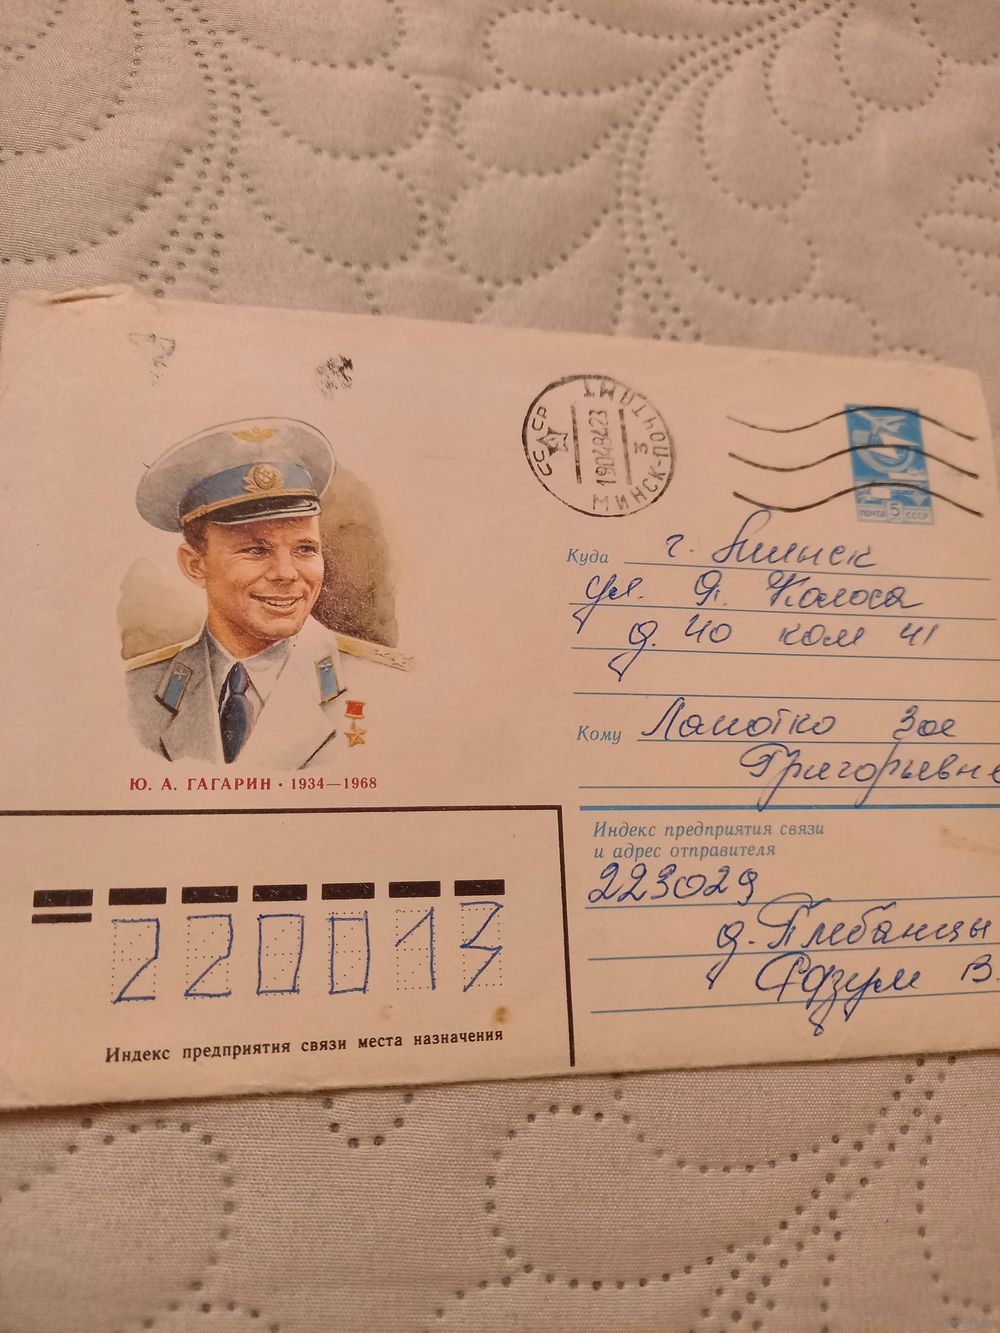 СССР
МИНСК-ПОЧТОМТ
3
190484 23
ПОЧТА 5 СССР
Куда г. Минск
ул. Я. Коласа
д. 40 ком 41
Кому Лапотко Зое
Григорьевне
Ю. А. ГАГАРИН · 1934—1968
Индекс предприятия связи
и адрес отправителя
223029
д. Плебанцы
Адзум В.
220013
Индекс предприятия связи места назначения